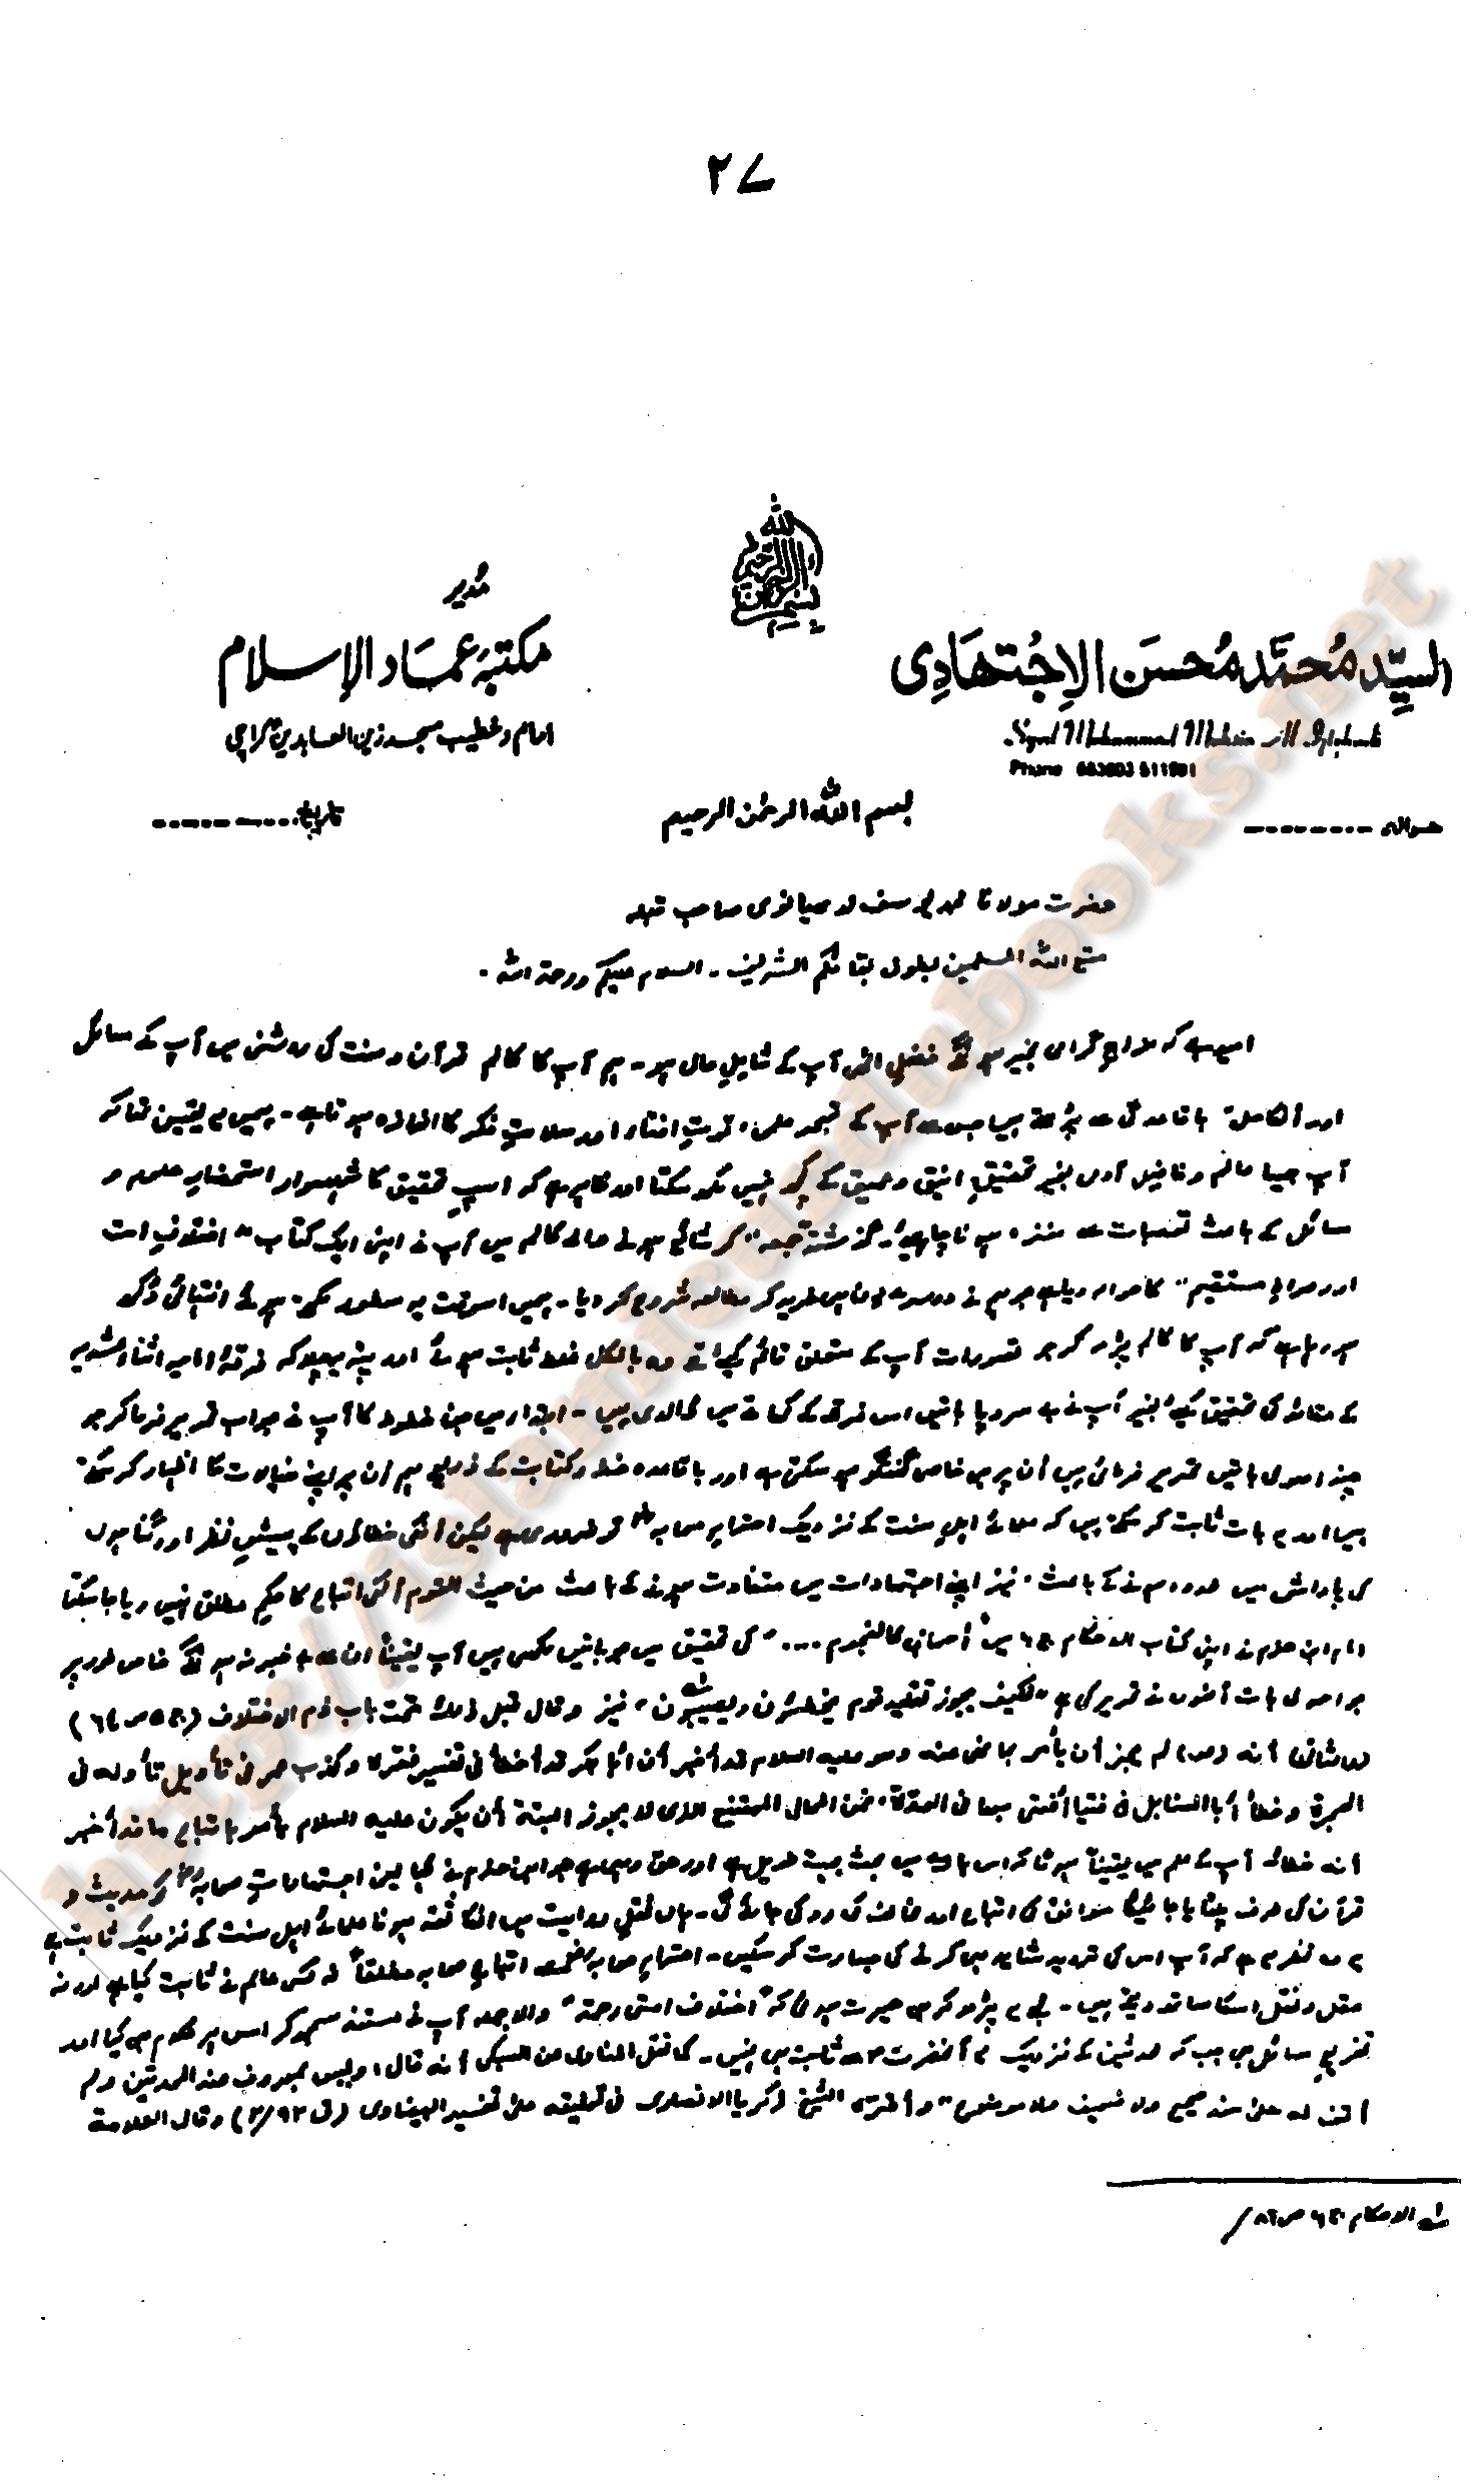 ۲۷
مُدیر
السيّد محمّد محسن الاجتهادی
مکتبۂ عماد الاسلام
امام و خطیب مسجد زین العابدین کراچی
Phone
حوالہ ---------
تاریخ ----------
بسم اللہ الرحمٰن الرحیم
حضرت مولانا محمد یوسف لدھیانوی صاحب قبلہ
متع اللہ المسلمین بطول بقائکم الشریف ۔ السلام علیکم ورحمۃ اللہ ۔
امید ہے کہ مزاج گرامی بخیر ہونگے فضلِ الٰہی آپ کے شاملِ حال ہو ۔ ہم آپ کا کالم قرآن و سنت کی روشنی میں آپ کے مسائل
اور اُنکا حل" باقاعدگی سے پڑھتے ہیں جس سے آپ کے تبحر علمی، قوتِ افتاء اور سلامتِ فکر کا اندازہ ہوتا ہے ۔ ہمیں یہ یقین تھا کہ
آپ جیسا عالم و فاضل آدمی بغیر تحقیقِ انیق و عمیق کے کچھ نہیں لکھ سکتا اور ظاہر ہے کہ اسپِ تحقیق کا شہسوار استحضارِ علوم و
مسائل کے باعث تعصبات سے منزہ ہونا چاہیئے۔ گزشتہ جمعہ کو شائع ہونے والے کالم میں آپ نے اپنی ایک کتاب "اختلافِ امت
اور صراطِ مستقیم" کا حوالہ دیا ہے جو ہم نے دوسرے دن ہی خرید کر مطالعہ شروع کر دیا ۔ ہمیں اسوقت یہ سطور لکھتے ہوئے انتہائی دُکھ
ہو رہا ہے کہ آپ کا کالم پڑھ کر جو تصورات آپ کے متعلق قائم کیے تھے وہ بالکل غلط ثابت ہوئے اور پتہ چلا کہ فرقۂ امامیہ اثناء عشریہ
کے عقائد کی تحقیق کیے بغیر آپ نے بے سروپا باتیں اس فرقے کے کھاتے میں ڈالدی ہیں ۔ ابتداء میں جن خطوط کا آپ نے جواب تحریر فرما کر جو
چند اصولی باتیں تحریر فرمائی ہیں اُن پر بھی خاصی گفتگو ہو سکتی ہے اور باقاعدہ خط و کتابت کے ذریعے ہم اُن پر اپنے خیالات کا اظہار کر سکتے
ہیں اور یہ بات ثابت کر سکتے ہیں کہ علمائے اہلِ سنت کے نزدیک احترامِ صحابہؓ تو ضروری ہے لیکن اُنکی خطاؤں کے پیشِ نظر اور گناہوں
کی پاداش میں محدود ہونے کے باعث، نیز اپنے اجتہادات میں متفاوت ہونے کے باعث من حیث القوم اُنکی اتباع کا حکمِ مطلق نہیں دیا جا سکتا
امام ابن حزم نے اپنی کتاب الاحکام ج٦ میں "أصحابی کالنجوم ...." کی تحقیق میں جو باتیں لکھی ہیں آپ یقیناً ان سے بے خبر نہ ہونگے خاص طور پر
جو اصولی بات اُنہوں نے تحریر کی ہے "فکیف یجوز تقلید قوم یخطئون ویصیبون" نیز وقال قبل ذلک تحت باب ذم الاختلاف (ج٥ ص٦٤)
أنه (ص) لم یجز أن یأمر بما نهی عنه وهو علیه السلام قد أخبر أن أبا بکر قد أخطأ فی تفسیر فسره وکذب عمر فی تأویل تأوله فی
الهجرة وخطأ أبا السنابل فی فتیا أفتی بها فی العدة، فمن المحال الممتنع الذی لا یجوز البتة أن یکون علیه السلام یأمر باتباع ما قد أخبر
أنه خطأ۔ آپ کے علم میں یقیناً ہو گا کہ اس بارے میں بحث بہت طویل ہے اور حق وہی ہے جو ابن حزم نے کہا یعنی اجتہاداتِ صحابہؓ کو حدیث و
قرآن کی طرف پلٹایا جائیگا موافق کی اتباع اور مخالف کی رد کی جائے گی ۔ ہاں نقلِ روایت میں انکا ثقہ ہونا علمائے اہل سنت کے نزدیک ثابت ہے
یہ وہ نظریہ ہے کہ آپ اس کی تردید شاید ہی کرنے کی جسارت کر سکیں ۔ احترامِ صحابہؓ سے اتباعِ صحابہ مطلقاً نہ کسی عالم نے ثابت کیا ہے اور نہ
عقل و نقل اسکا ساتھ دیتے ہیں ۔ مجھے یہ پڑھ کر بھی حیرت ہوئی کہ "اختلاف امتی رحمة" والا جملہ آپ نے مستند سمجھ کر اس پر کلام بھی کیا اور
تفریعِ مسائل بھی جب کہ محدثین کے نزدیک یہ آنحضرت سے ثابت ہی نہیں ۔ کما نقل المناوی عن السبکی أنه قال: ولیس بمعروف عند المحدثین ولم
أقف له علی سند صحیح ولا ضعیف ولا موضوع" وأقره الشیخ زکریا الانصاری فی تعلیقه علی تفسیر البیضاوی (ق ۹۲/۲) وقال العلامة
لہ الاحکام ج٦ ص٨٣/
http://islamicurdubooks.net